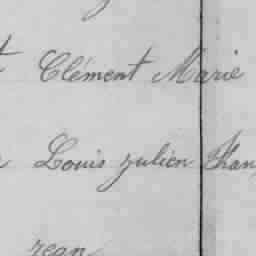 Clément Marie
Louis Julien
Jean